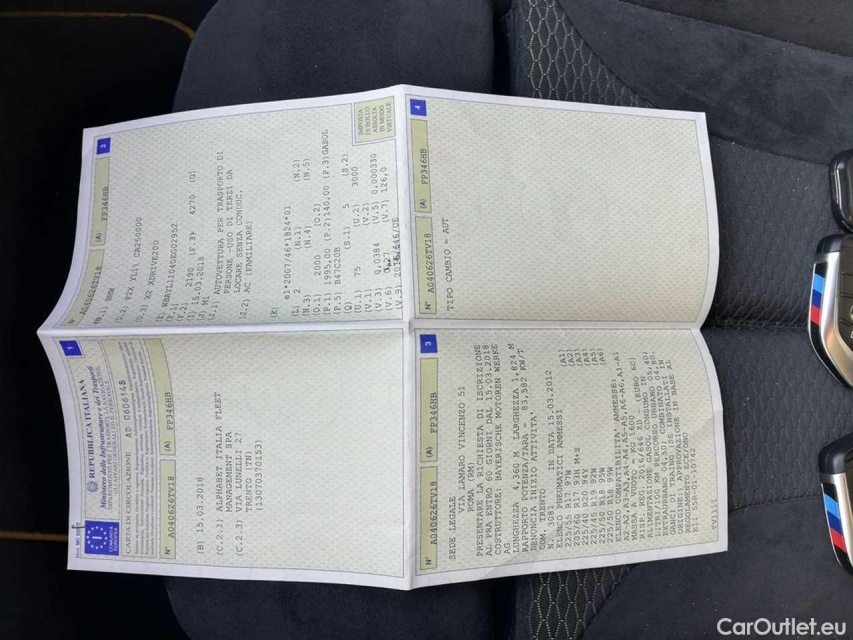 1
REPUBBLICA ITALIANA
Ministero delle Infrastrutture e dei Trasporti
DIPARTIMENTO PER I TRASPORTI, LA NAVIGAZIONE,
GLI AFFARI GENERALI ED IL PERSONALE
CARTA DI CIRCOLAZIONE AD 0606148
N° A040626TV18 (A) FP346HB
(B) 15.03.2018
(C.2.1) ALPHABET ITALIA FLEET
MANAGEMENT SPA
(C.2.3) VIA LUNELLI 27
TRENTO (TN)
(13070370153)
2
N° A040626TV18 (A) FP346HB
(D.1) BMW
(D.2) F2X YL11
(D.3) X2 XDRIVE20D
(E)
(F.2) 2190 (F.3) 4270 (G)
(I) 15.03.2018
(J) M1
(J.1) AUTOVETTURA PER TRASPORTO DI
PERSONE -USO DI TERZI DA
LOCARE SENZA CONDUC.
(J.2) AC (FAMILIARE)
(K) e1*2007/46*1824*01
(L) 2 (N.1) (N.2)
(N.3) (N.4) (N.5)
(O.1) 2000 (O.2)
(P.1) 1995,00 (P.2)140,00 (P.3)GASOL
(P.5) B47C20B
(Q) (S.1) 5 (S.2)
(U.1) 75 (U.2) 3000
(V.1) (V.2)
(V.3) 0,0384 (V.5) 0,000330
(V.6) (V.7) 126,0
(V.9)
IMPOSTA
DI BOLLO
ASSOLTA
IN MODO
VIRTUALE
3
N° A040626TV18 (A) FP346HB
SEDE LEGALE
VIA LAMARO VINCENZO 51
ROMA (RM)
PRESENTARE LA RICHIESTA DI ISCRIZIONE
AL PRA ENTRO 60 GIORNI DAL 15.03.2018
COSTRUTTORE: BAYERISCHE MOTOREN WERKE
AG
LUNGHEZZA 4,360 M LARGHEZZA 1,824 M
RAPPORTO POTENZA/TARA = 83,582 KW/T
DENUNCIA INIZIO ATTIVITA'
COM. TRENTO
N. 3081 IN DATA 15.03.2012
ELENCO PNEUMATICI AMMESSI
225/55 R17 97W (A1)
205/60 R17 93H M+S (A2)
225/40 R20 94Y (A3)
225/45 R19 92W (A4)
225/50 R18 95W (A5)
225/50 R18 99W (A6)
ELENCO COMPATIBILITA' AMMESSE:
A2-A2,A3-A3,A4-A4,A5-A5,A6-A6,A1-A1
MASSA A VUOTO = KG 1600
RISP. REG. 2016/646 ID - (EURO 6C)
ALIMENTAZIONE GASOL CONSUMO IN
4
N° A040626TV18 (A) FP346HB
TIPO CAMBIO = AUT
CarOutlet.eu